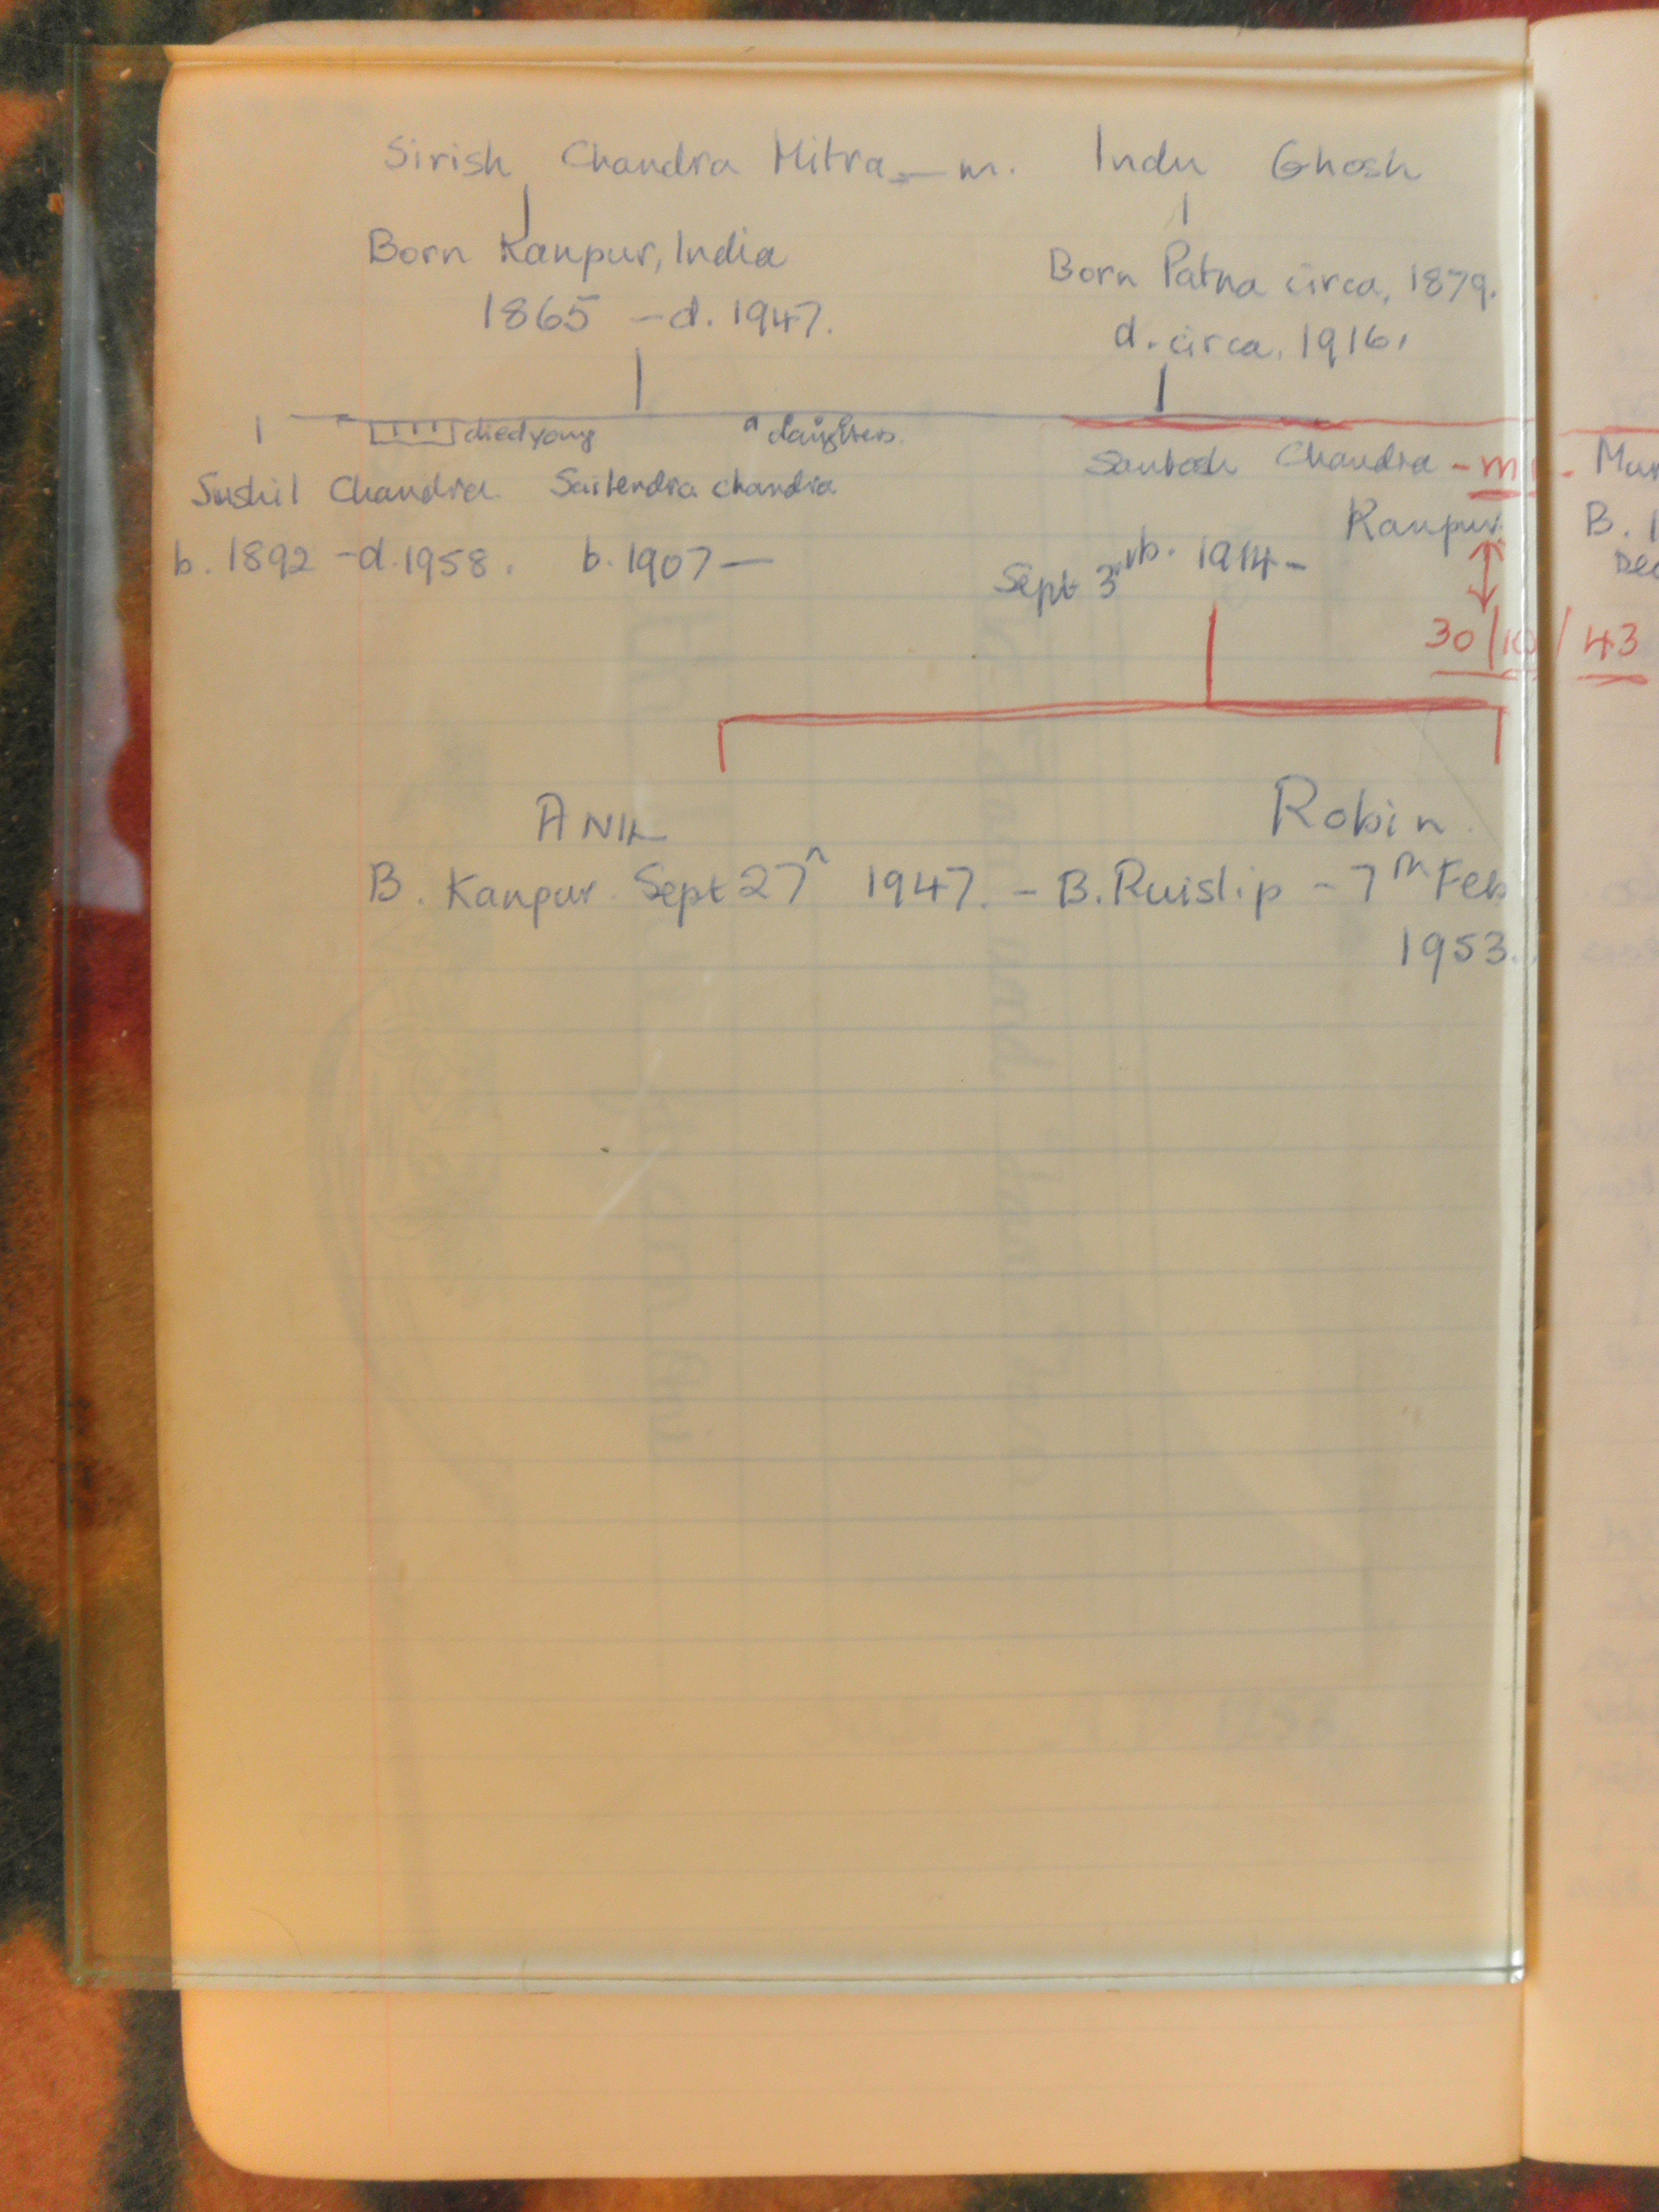 Sirish Chandra Mitra — m. Indu Ghosh
Born Kanpur, India
1865 – d. 1947.
Born Patna circa, 1879.
d. circa. 1916.
died young
daughters.
Sushil Chandra
b. 1892 – d. 1958.
Sailendra Chandra
b. 1907 —
Santosh Chandra - m -
Kanpur
Sept 3rd b. 1914 –
B.
30/10/43
ANIL
B. Kanpur. Sept 27th 1947. –
Robin
B. Ruislip – 7th Feb
1953.